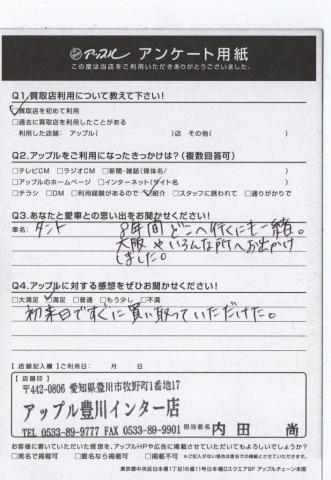 アップル アンケート用紙
この度は当店をご利用いただきありがとうございました。
Q1.買取店利用について教えて下さい!
☑買取店を初めて利用
□過去に買取店を利用したことがある
利用した店舗: アップル( )店 その他( )
Q2.アップルをご利用になったきっかけは?(複数回答可)
□テレビCM □ラジオCM □新聞・雑誌(媒体名/ )
□アップルのホームページ □インターネット(サイト名 )
□チラシ □DM □利用経験があるので ☑紹介 □スタッフに誘われて □通りがかりで
Q3.あなたと愛車との思い出をお聞かせください!
車名: タント 8年間どこへ行くにも一緒。
大阪やいろんな所へお出かけ
しました。
Q4.アップルに対する感想をぜひお聞かせください!
□大満足 ☑満足 □普通 □もう少し □不満
初来日ですぐに買い取っていただけた。
【店舗記入欄】ご利用日: 月 日
【店舗印】
〒442-0806 愛知県豊川市牧野町1番地17
アップル豊川インター店
TEL 0533-89-9777 FAX 0533-89-9901
担当者名 内田 尚
お客様に書いていただいた感想を、アップルHPや広告に掲載させていただいてもよろしいでしょうか?
□実名で掲載可 □匿名なら掲載可 □掲載不可 ※ご記入がない場合は匿名での掲載とさせていただきます。
東京都中央区日本橋1丁目16番11号日本橋DスクエアGF アップルチェーン本部